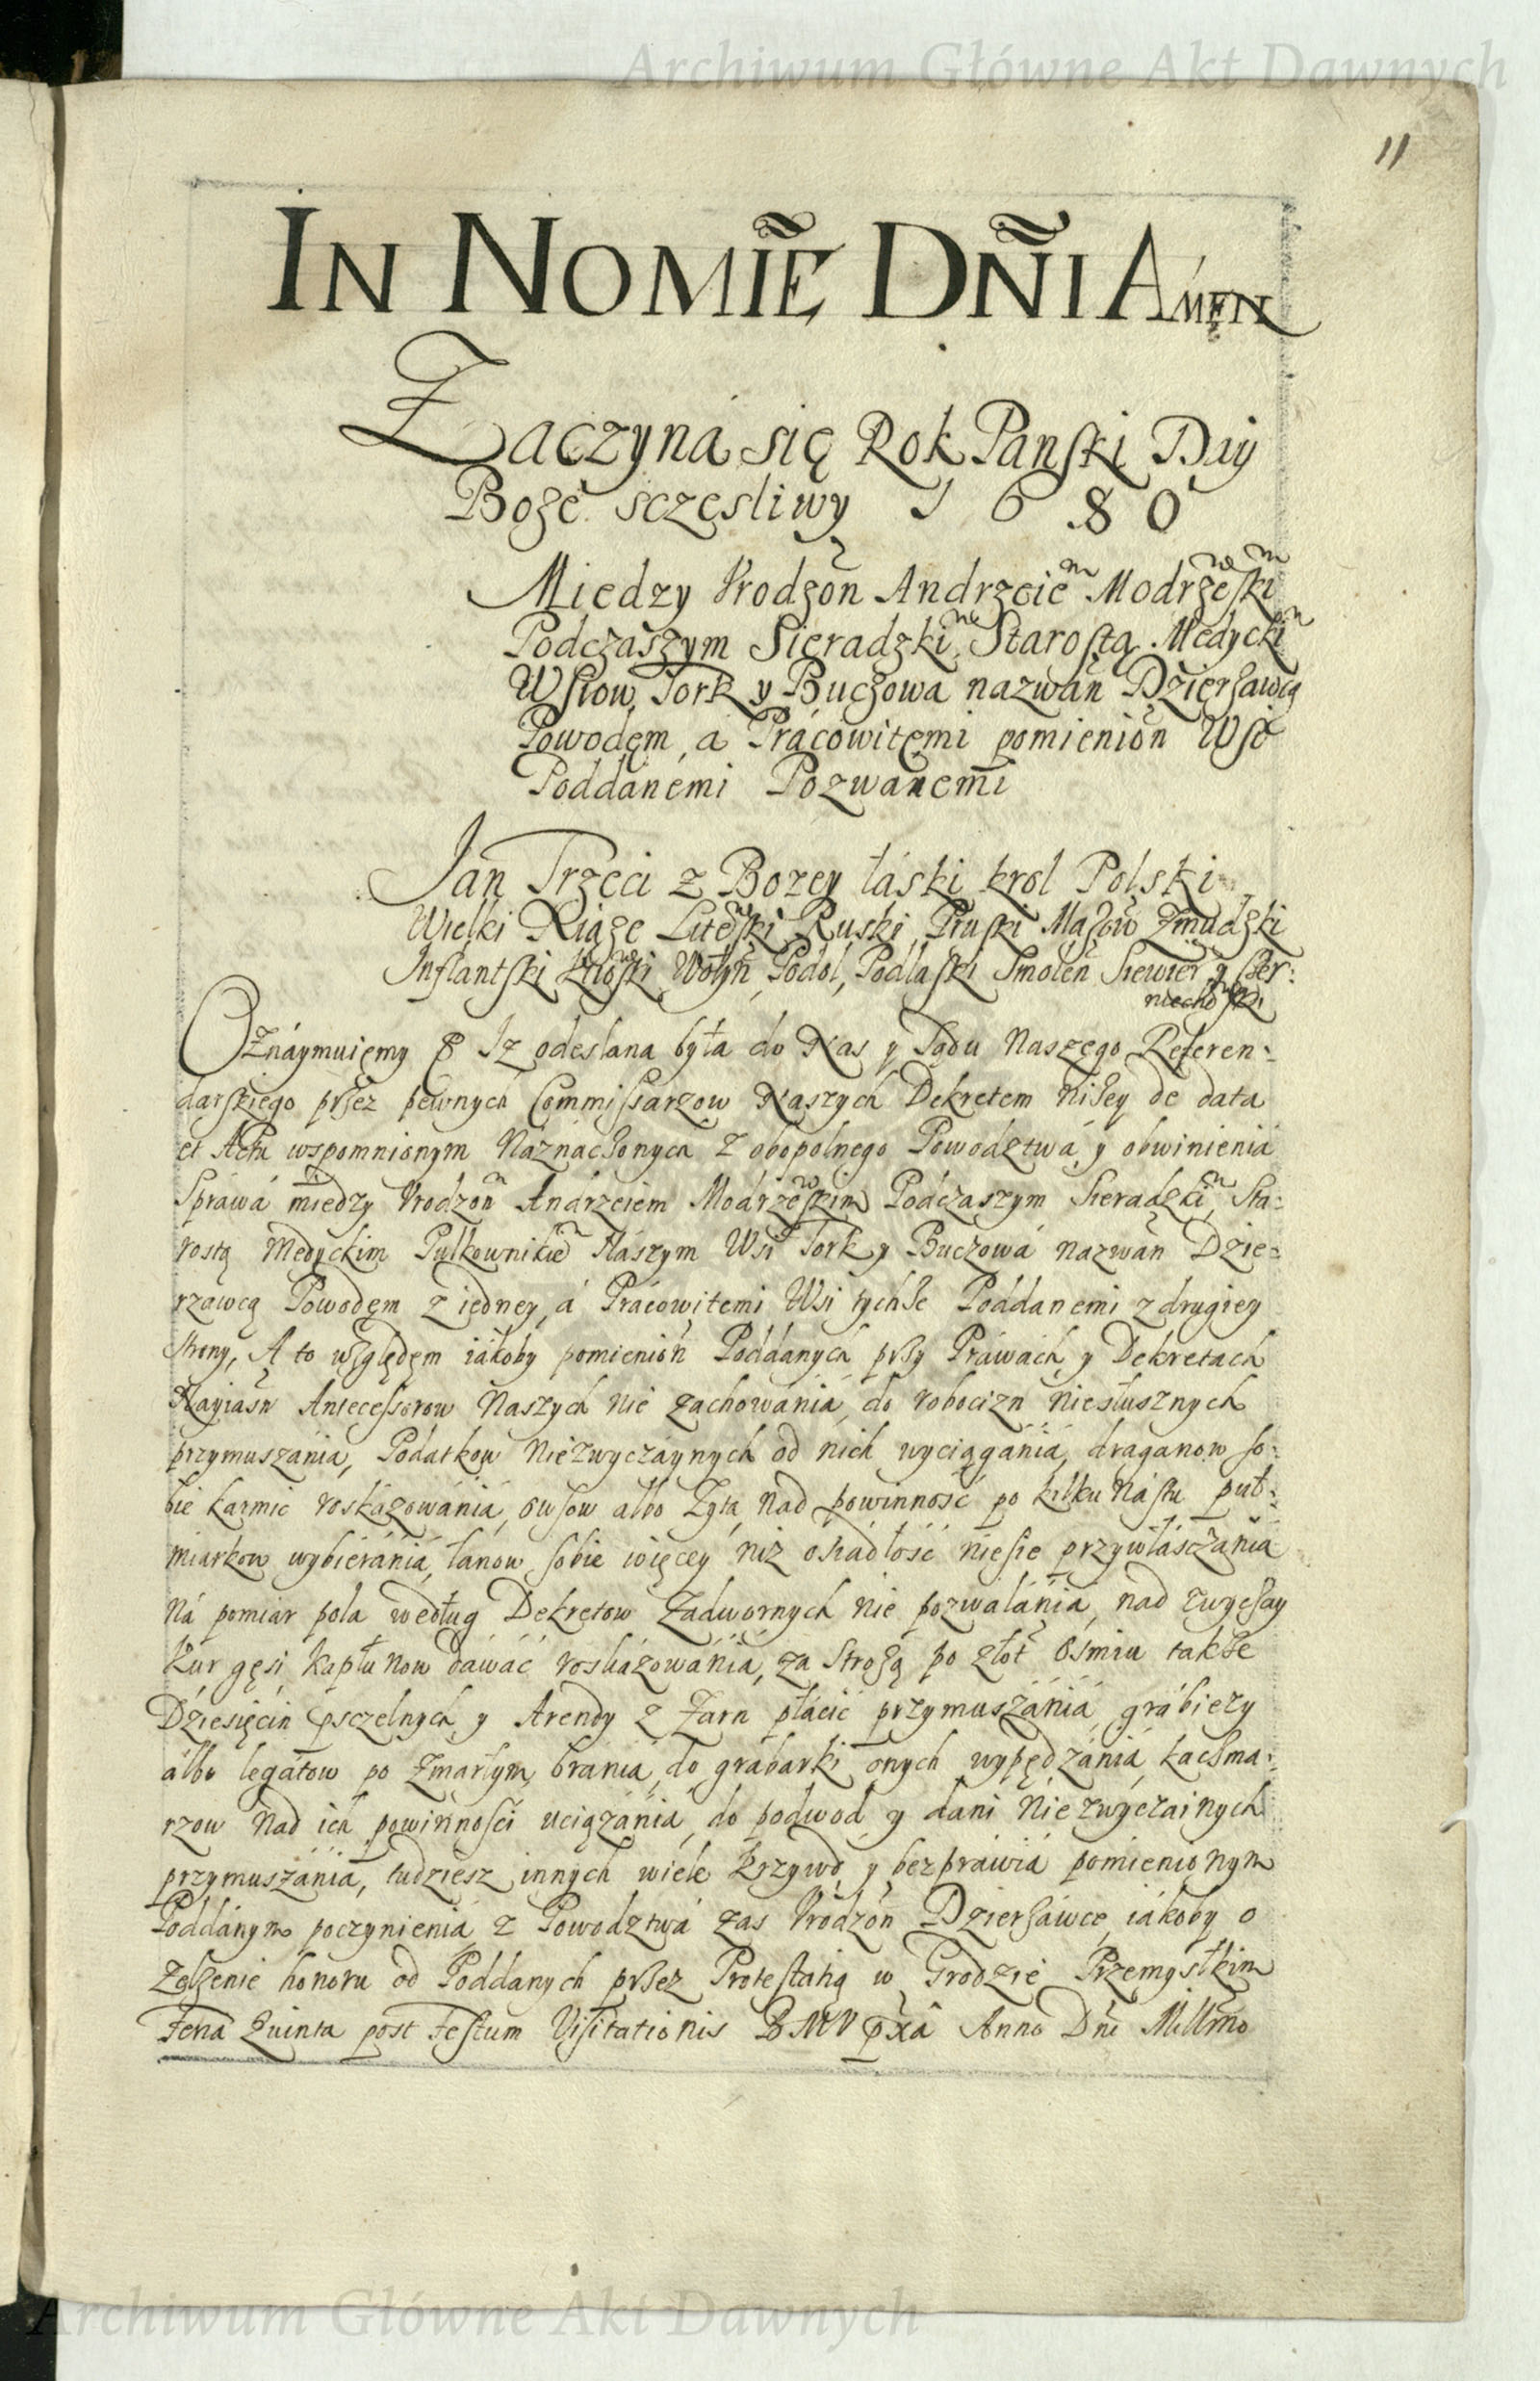 Archiwum Główne Akt Dawnych
11
IN NOMĪE DÑI AMEN
Zaczyna się Rok Panski Day
Boże sczęsliwy 1680
Miedzy Vrodzon Andrzeiem Modrzewskim
Podczaszym Sieradzkim Starostą Medyckim
Wsiow Tork y Buczowa nazwan Dzierżawcą
Powodęm, a Prácowitęmi pomienion Wsi
Poddanémi Pozwanemi
Jan Trzeci z Bozey łáski krol Polski
Wielki Xiąże Litewski Ruski Pruski Mazow Zmudzki
Inflantski Kiiowski, Wołyn, Podol, Podlaski Smolen Siewier y Czer:
niechowski
Oznáymuięmy Iż odesłana była do Nas y Sądu Naszęgo Referen:
darskiego przez pewnych Commissarzow Naszych Dekretem niżey de data
et Actu wspomnionym Náznaczonych z obopolnego Powodztwá y obwinienia
Spráwá miedzy Vrodzon Andrzeiem Modrzewskim Podczaszym Sieradzkim, Sta:
rostą Medyckim Pułkownikiem Nászym Wsi Tork y Buczowá nazwan Dzie:
rzawcą Powodęm z iedney, á Prácowitemi Wsi tychże Poddanemi z drugiey
strony, A to względęm iákoby pomienion Poddanych przy Práwach y Dekretach
Nayiasn Antecessorow Naszych nie zachowánia, do robocizn niesłusznych
przymuszánia, Podatkow niezwyczáynych od nich wyciągánia, draganow so:
bie karmic roskázowániá, owsow albo Zyta nad powinność po kilku nástu puł:
miarkow wybieránia, łanow sobie więcey niż osiadłość niesie przywłaśczánia
ná pomiar pola według Dekretow Zadwornych nie pozwalánia, nad zwyczay
Kur gęsi, kapłunow dawáć roskázowánia, za Strożą po złot ośmiu także
Dziesięcin psczelnych y Arendy z Żarn płácić przymuszánia, grabiezy
álbo legátow po Zmarłym brania, do grabarki onych wypędzánia, kaczma:
rzow nad ich powinności uciązánia, do podwod y dani niezwyczainych
przymuszánia, tudziesz innych wiele krzywd y bezprawia pomienionym
Poddánym poczynienia, z Powodztwá zas Vrodzon Dzierżáwcę iákoby o
Zelżenie honoru od Poddanych przez Protestatią w Grodzie Przemyskim
Feria Quinta post Festum Visitationis BMV pxa Anno Dni Millmo
Archiwum Główne Akt Dawnych